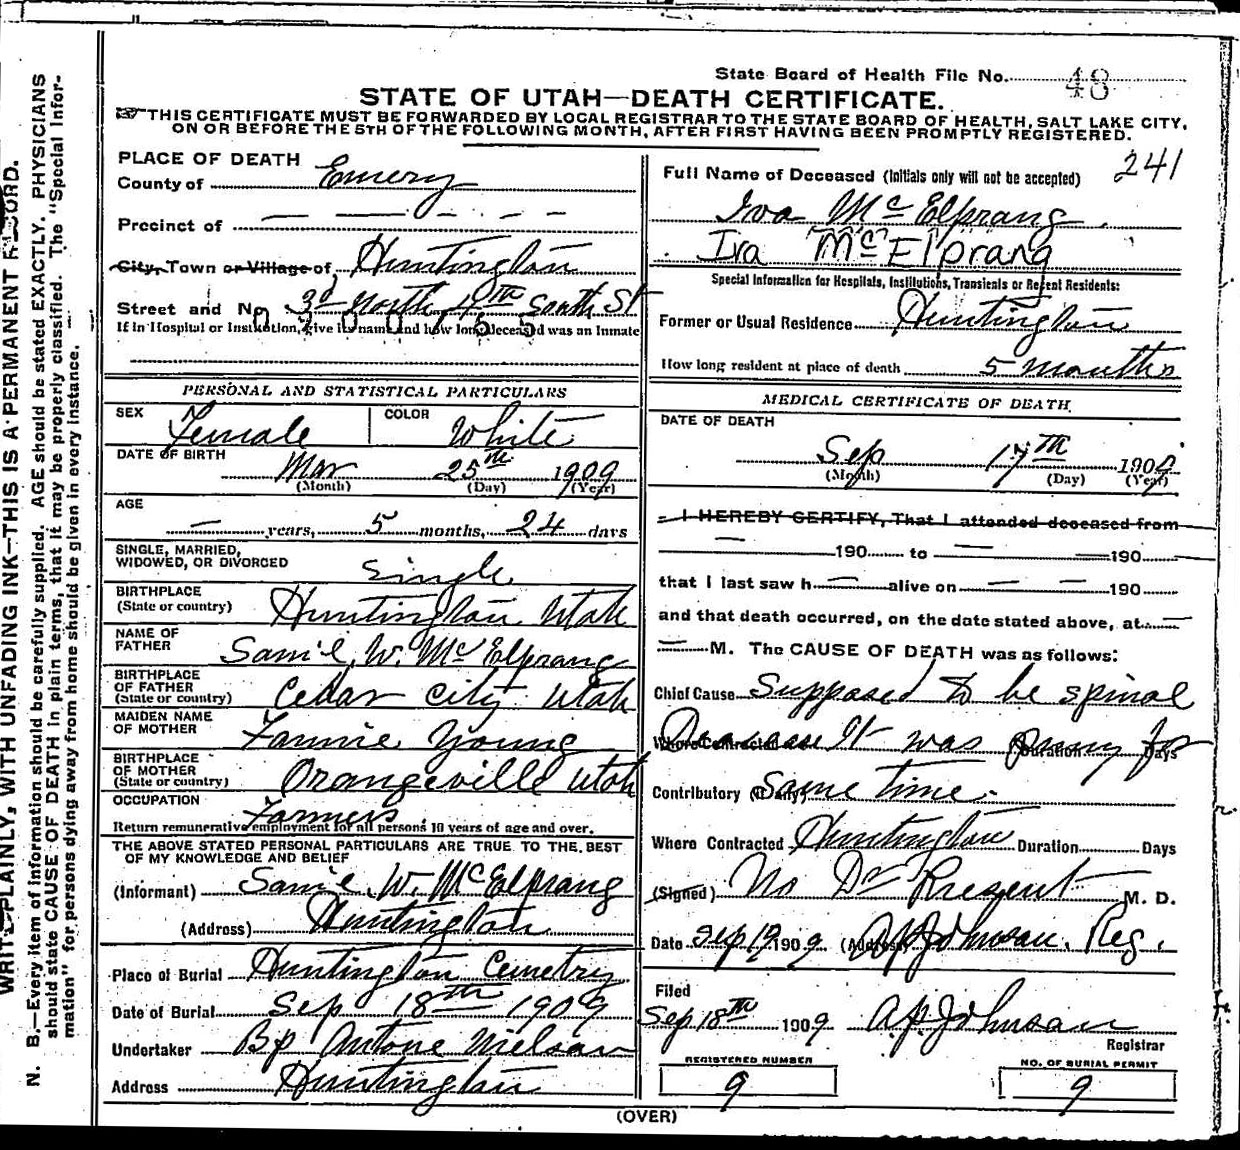 State Board of Health File No. 48
STATE OF UTAH—DEATH CERTIFICATE.
THIS CERTIFICATE MUST BE FORWARDED BY LOCAL REGISTRAR TO THE STATE BOARD OF HEALTH, SALT LAKE CITY,
ON OR BEFORE THE 5TH OF THE FOLLOWING MONTH, AFTER FIRST HAVING BEEN PROMPTLY REGISTERED.
WRITE PLAINLY, WITH UNFADING INK—THIS IS A PERMANENT RECORD.
N. B.—Every item of information should be carefully supplied. AGE should be stated EXACTLY. PHYSICIANS
should state CAUSE OF DEATH in plain terms, that it may be properly classified. The "Special Infor-
mation" for persons dying away from home should be given in every instance.
PLACE OF DEATH
County of Emery
Precinct of — — — - - -
City, Town or Village of, Huntington
Street and No. 3d North 4th South St
If in Hospital or Institution, give its name and how long deceased was an Inmate
PERSONAL AND STATISTICAL PARTICULARS
SEX Female COLOR White
DATE OF BIRTH Mar 25th 1909
(Month) (Day) (Year)
AGE
— years, 5 months, 24 days
SINGLE, MARRIED,
WIDOWED, OR DIVORCED Single
BIRTHPLACE
(State or country) Huntington Utah
NAME OF
FATHER Sam'l W. McElprang
BIRTHPLACE
OF FATHER
(State or country) Cedar City Utah
MAIDEN NAME
OF MOTHER Fannie Young
BIRTHPLACE
OF MOTHER
(State or country) Orangeville Utah
OCCUPATION Farmers
Return remunerative employment for all persons 10 years of age and over.
THE ABOVE STATED PERSONAL PARTICULARS ARE TRUE TO THE BEST
OF MY KNOWLEDGE AND BELIEF
(Informant) Sam'l W. McElprang
(Address) Huntington
Place of Burial Huntington Cemetry
Date of Burial Sep 18th 1909
Undertaker Bp Antone Nielson
Address Huntington
241
Full Name of Deceased (Initials only will not be accepted)
Iva McElprang.
Iva McElprang
Special Information for Hospitals, Institutions, Transients or Recent Residents:
Former or Usual Residence Huntington
How long resident at place of death 5 months
MEDICAL CERTIFICATE OF DEATH
DATE OF DEATH
Sep 17th 1909
(Month) (Day) (Year)
I HEREBY CERTIFY, That I attended deceased from
— 190 to — 190
that I last saw h — alive on — — 190
and that death occurred, on the date stated above, at —
— M. The CAUSE OF DEATH was as follows:
Chief Cause Supposed to be spinal
Where Contracted Disease It was Duration puny for Days
Contributory (if any) Some time.
Where Contracted Huntington Duration Days
(Signed) No Dr Present M. D.
Date Sep 19 1909 (Address) A.P. Johnson, Reg.
Filed
Sep 18th 1909 A.P. Johnson
Registrar
REGISTERED NUMBER
9
NO. OF BURIAL PERMIT
9
(OVER)